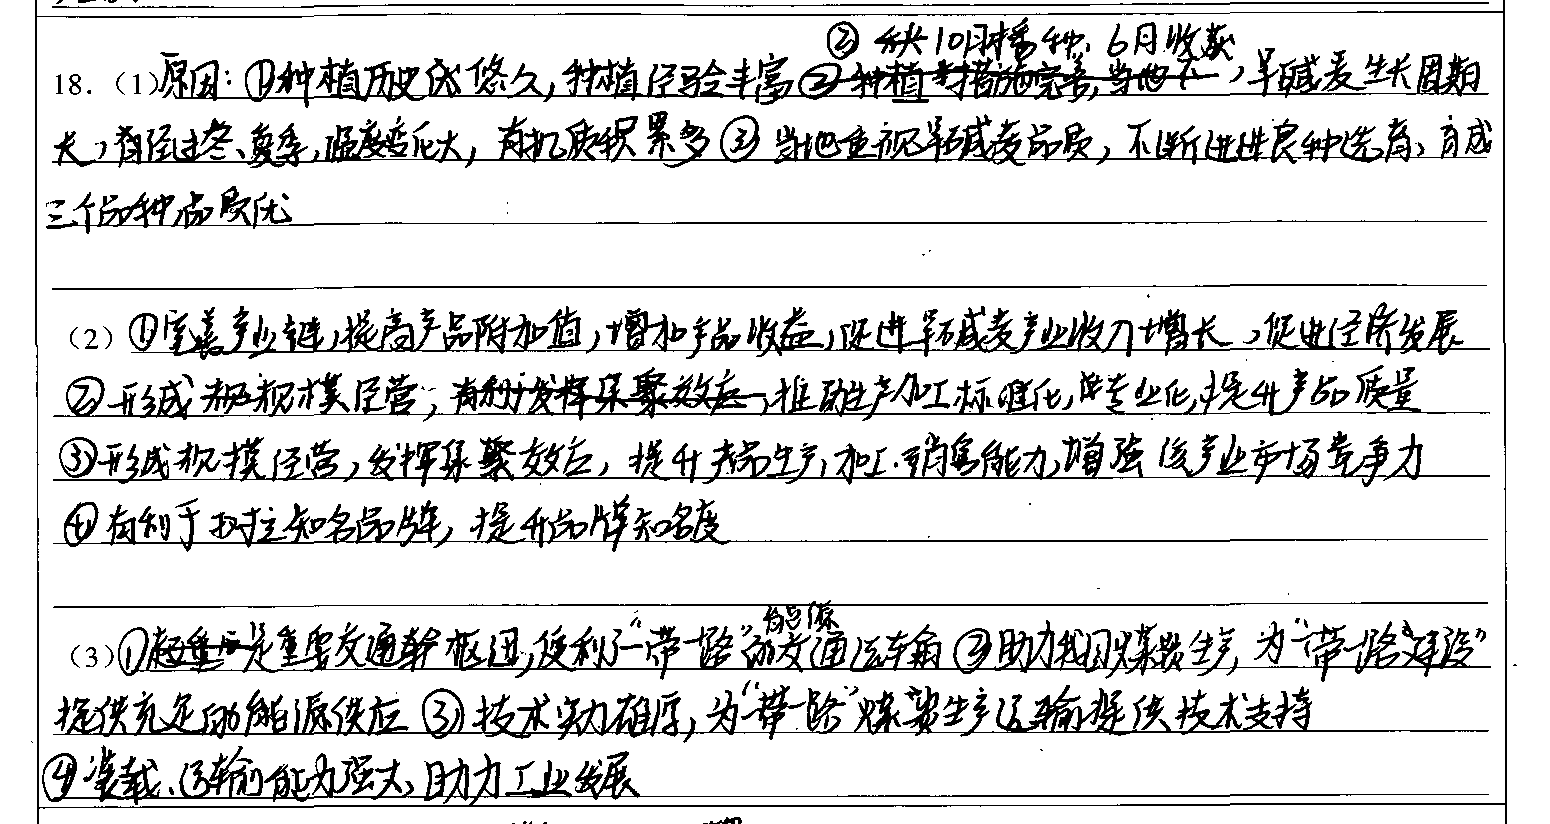 ② 秋10月播种、6月收获
18.（1）原因：①种植历史悠久，种植经验丰富 ②种植措施完善，当地，旱碱麦生长周期
长，有经过冬、夏季，温度变化大，有机质积累多 ③ 当地重视旱碱麦品质，不断进进良种选育，育成
三个品种品质优
（2）①完善产业链，提高产品附加值，增加产品收益，促进旱碱麦产业收入增长，促进经济发展
②形成规模经营，有利于发挥集聚效应，推动生产加工标准化，专业化，提升产品质量
③形成规模经营，发挥集聚效应，提升产品生产，加工、销售能力，增强该产业市场竞争力
④有利于树立知名品牌，提升品牌知名度
能源
（3）①是重要交通运输枢纽，便利了“一带一路”的交通运输 ②助力我国煤炭生产，为“一带一路建设”
提供充足的能源供应 ③技术实力雄厚，为“一带一路”煤炭生产运输提供技术支持
④装载、运输能力强大，助力工业发展